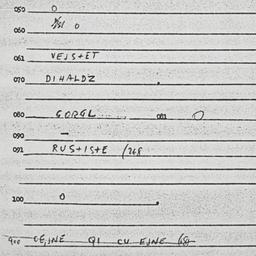 050 0
060 0
061 VEJS+ET
070 DIHALDZ
080 GORGL 081 0
090 –
091 RUS+IS+E /268
100 0
900 CE,INE QI CU EJNE